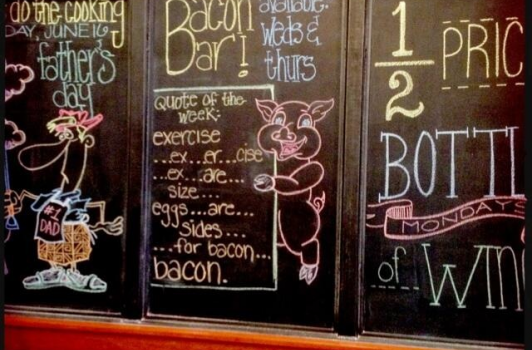 do the cooking
DAY, JUNE 16
father's
day
#1
DAD
Bacon
Bar!
available
weds &
thurs
Quote of the
week:
exercise
...ex...er...cise
...ex...are...
size...
eggs...are...
sides...
...for bacon...
bacon.
1/2 PRIC
BOTTL
MONDAYS
of WIN